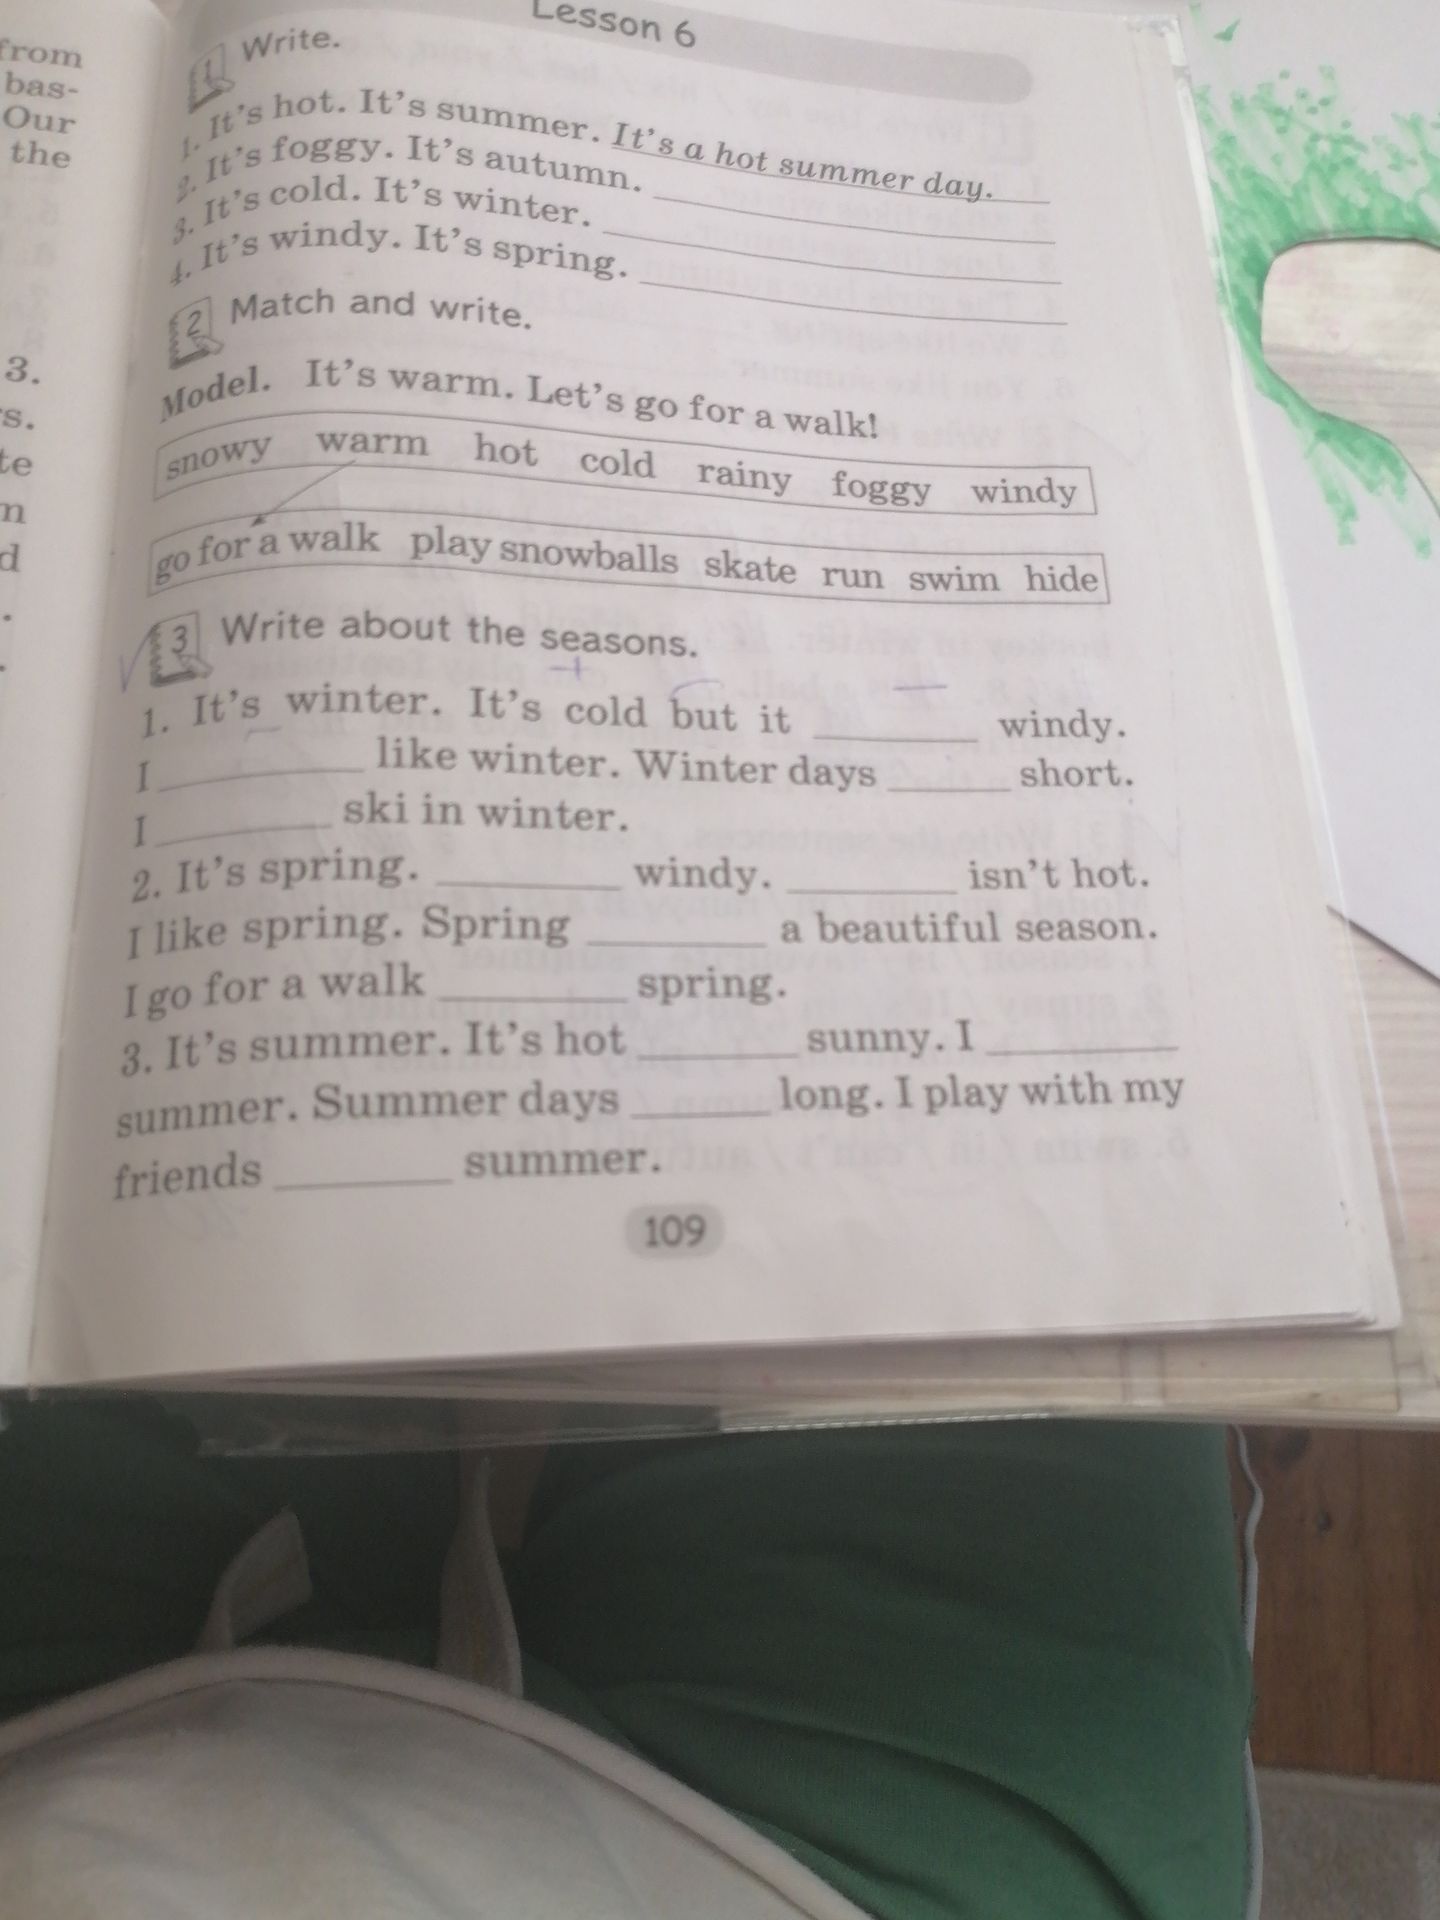 from
bas-
Our
the
3.
s.
te
m
d
.
.
Lesson 6
1 Write.
1. It's hot. It's summer. It's a hot summer day.
2. It's foggy. It's autumn.
3. It's cold. It's winter.
4. It's windy. It's spring.
2 Match and write.
Model. It's warm. Let's go for a walk!
snowy warm hot cold rainy foggy windy
go for a walk play snowballs skate run swim hide
3 Write about the seasons.
1. It's winter. It's cold but it ________ windy.
I ________ like winter. Winter days ________ short.
I ________ ski in winter.
2. It's spring. ________ windy. ________ isn't hot.
I like spring. Spring ________ a beautiful season.
I go for a walk ________ spring.
3. It's summer. It's hot ________ sunny. I ________
summer. Summer days ________ long. I play with my
friends ________ summer.
109